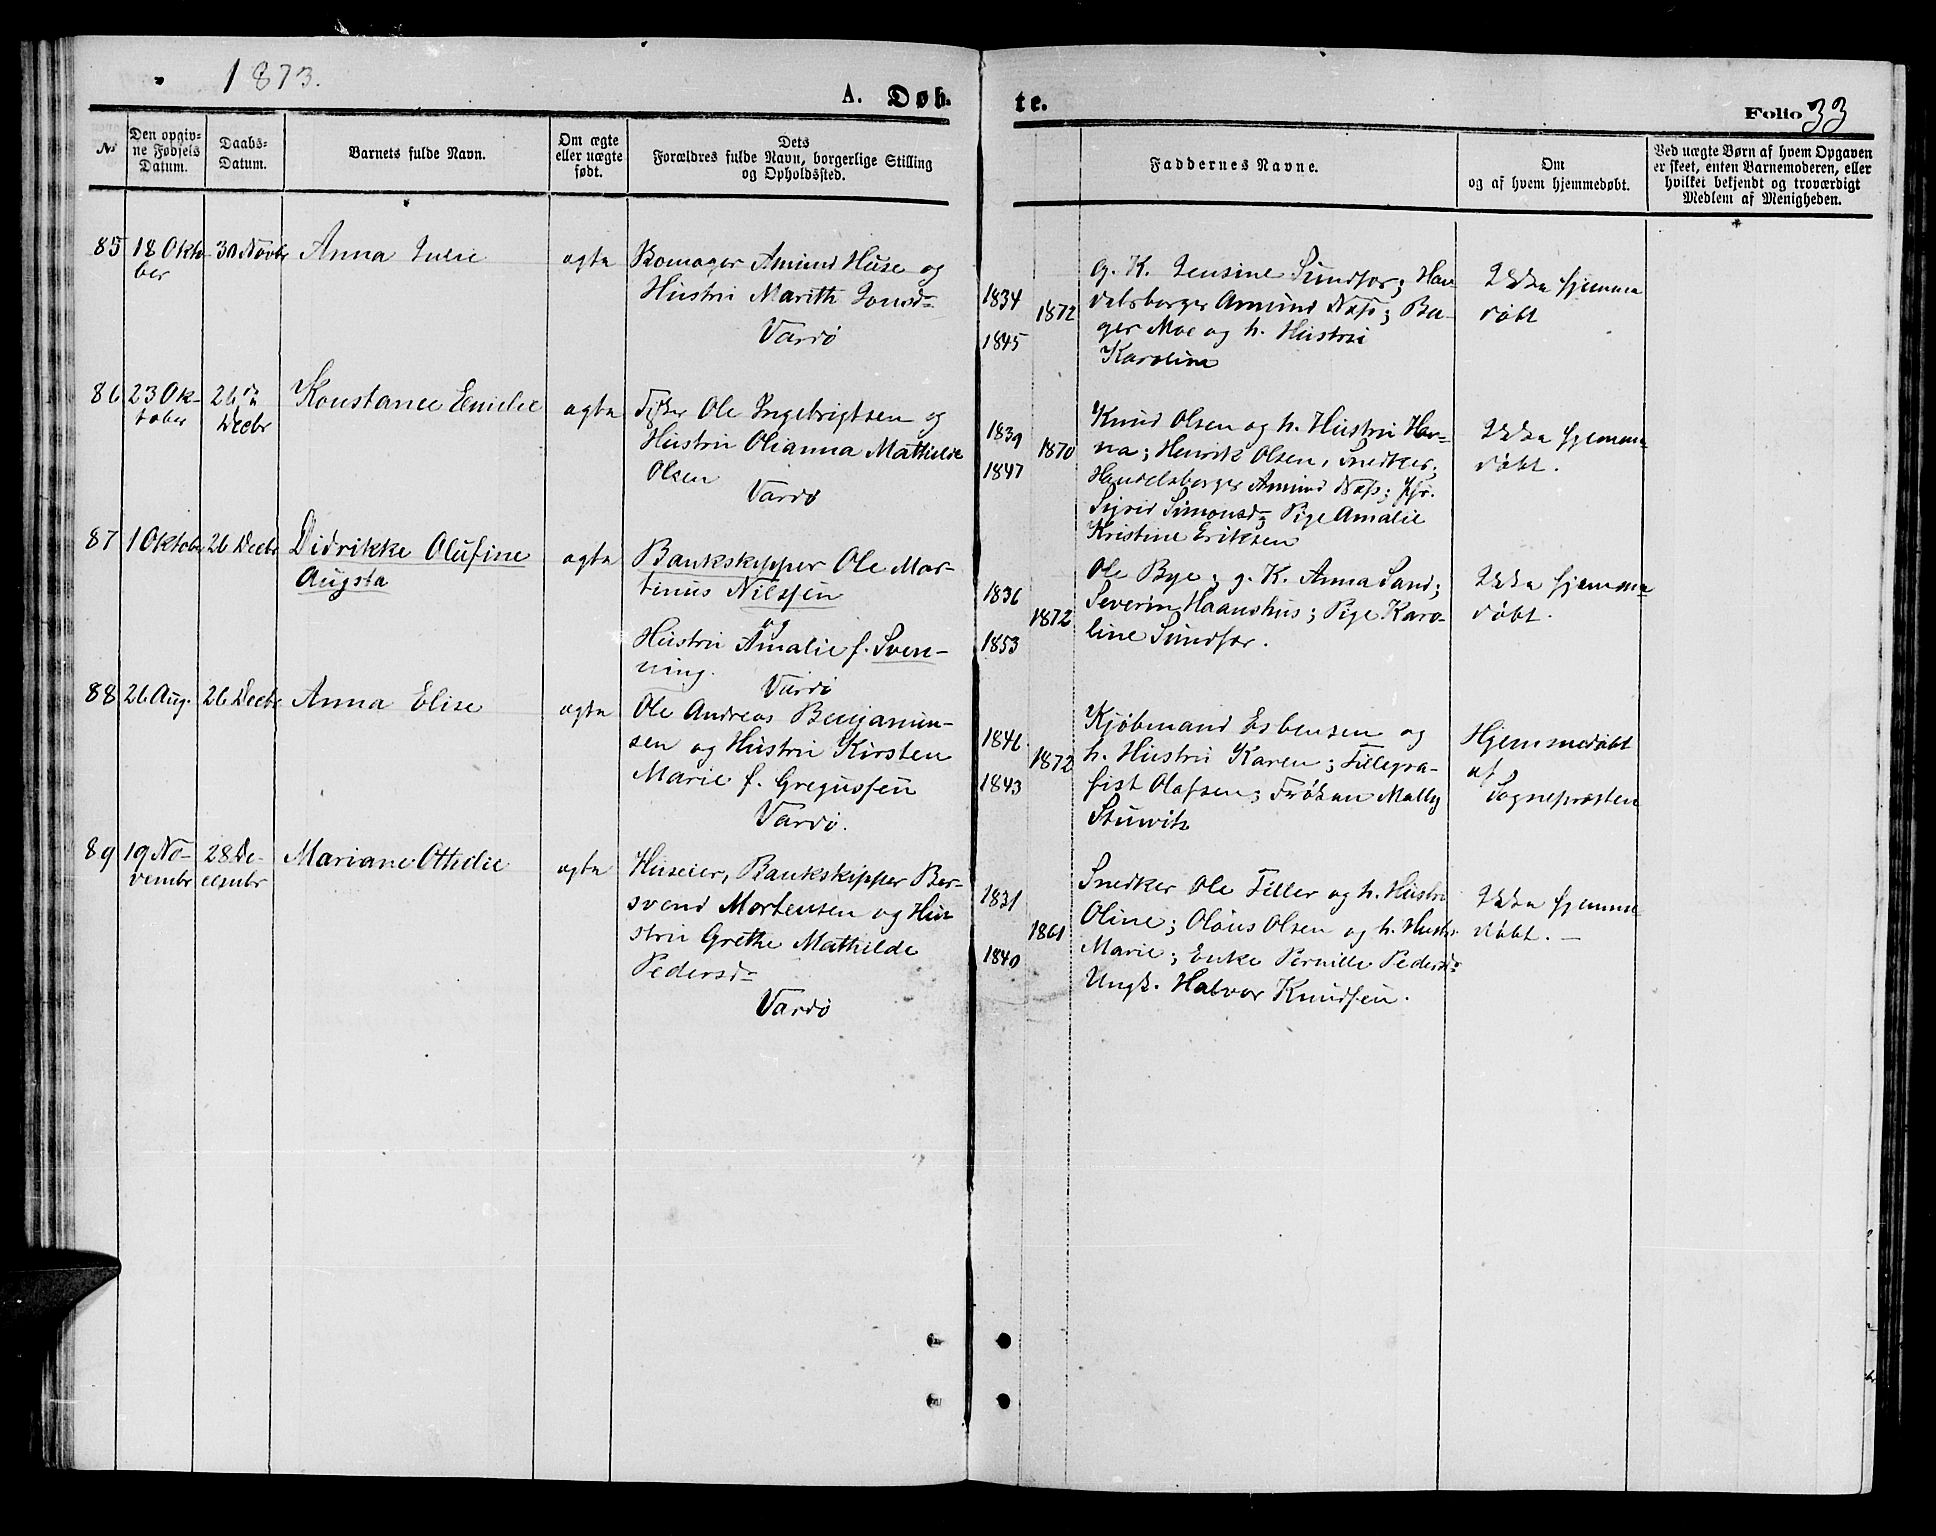 1873.
A. Døb-
te.
Folio 33
No
Den opgiv-
ne Fødsels
Datum.
Daabs-
Datum.
Barnets fulde Navn.
Om ægte
eller uægte
født.
Dets
Forældres fulde Navn, borgerlige Stilling
og Opholdssted.
Faddernes Navne.
Om
og af hvem hjemmedøbt.
Ved uægte Børn af hvem Opgaven
er skeet, enten Barnemoderen, eller
hvilket bekjendt og troværdigt
Medlem af Menigheden.
85
18 Okto
ber
30 Novbr
Anna Julie
ægte
Amund Huse og
Hustru Marith Jonsd
Vardø
1834
1845
1872
g. K. Jensine Sundfør; Han
delsborger Amund Næss; Ba-
ger Moe og h. Hustru
Karoline
Ikke hjemme
døbt
86
23 Ok-
tober
26de
Decbr
Konstance Emelie
ægte
Fisker Ole Ingebrigtsen og
Hustru Olianna Mathilde
Olsen
Vardø
1839
1847
1870
Knud Olsen og h. Hustru Han-
na; Henrik Olsen, Snedker;
Handelsborger Amund Næss;
Sigrid Simonsd; Pige Amalie
Kristine Eriksen
Ikke hjemme-
døbt.
87
1 Oktober
26 Decbr
Didrikke Olufine
Augsta
ægte
Bankskipper Ole Mar-
tinus Nilssen
og
Hustru Amalie f. Sven-
ning.
Vardø
1836
1853
1872
Ole Bye; g. K. Anna Sand;
Severin Haanshus; Pige Karo-
line Sundfør.
Ikke hjemme
døbt.
88
26 Aug.
26 Decbr
Anna Elise
ægte
Ole Andreas Benjamin-
sen og Hustru Kirsten
Marie f. Gregussen
Vardø.
1846
1843
1872
Kjøbmand Esbensen og
h. Hustru Karen; Tellegra-
fist Olafsen; Frøken Mally
Stuwitz
Hjemmedøbt
af
Sognepræsten
89
19 No-
vembr
28 De-
cembr
Mariane Othelie
ægte
Huseier, Bankskipper Ber-
svend Mortensen og Hu
stru Grethe Mathilde
Pedersd
Vardø
1831
1840
1861
Snedker Ole Tiller og h. Hustru
Oline; Olaus Olsen og h. Hustr.
Marie; Enke Pernille Pedersd
Ungk. Halvor Knudsen.
Ikke hjemme
døbt. —